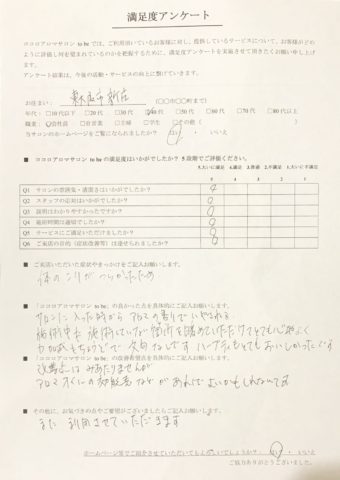 満足度アンケート
ココロアロマサロン to be では、ご利用頂いているお客様に対し、提供しているサービスについて、お客様がどの
ように評価し何を望まれているのかを把握するために、満足度アンケートを実施させて頂きたくお願い申し上げ
ます。
アンケート結果は、今後の活動・サービスの向上に繋げていきます。
お住まい： 東大阪市新庄 （○○市○○町まで）
年代：□10代 □20代 □30代 □40代 □50代 □60代 □70代 □80代以上
職業：□会社員 □自営業 □主婦 □学生 □その他（ ）
当サロンのホームページをご覧になられましたか？ はい ・ いいえ
■ ココロアロマサロン to be の満足度はいかがでしたか？5段階でご評価ください。
5.大いに満足 4.満足 3.普通 2.不満足 1.大いに不満足
5 4 3 2 1
Q1 サロンの雰囲気・清潔さはいかがでしたか？
Q2 スタッフの応対はいかがでしたか？
Q3 説明はわかりやすかったですか？
Q4 施術時間は適切でしたか？
Q5 サービスにご満足いただけましたか？
Q6 ご来店の目的（症状改善等）は達せられましたか？
■ ご来店いただいた症状やきっかけをご記入お願いします。
体のこりがつらかったため
■ 「ココロアロマサロン to be」の良かった点を具体的にご記入お願いします。
サロンに入った時から アロマの香りでいやされる
施術中も 施術していない箇所を暖めていただけてとても心地よく
力加減もちょうどで 大満足です ハーブティもとてもおいしかったです
■ 「ココロアロマサロン to be」の改善希望点を具体的にご記入お願いします。
改善点は みあたりませんが
アロマオイルの などが あれば よいかもしれないです
■ その他に、お気づきの点やご要望がございましたらご記入お願いします。
また 利用させていただきます
ホームページ等でご紹介させていただいてもよろしいでしょうか？ はい ・ いいえ
ご協力ありがとうございました。